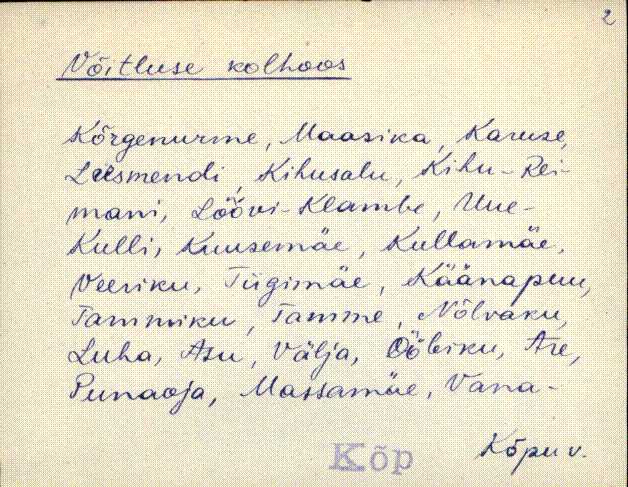 2
Võitluse kolhoos
Kõrgenurme, Maasika, Karuse,
Liismendi, Kihusalu, Kihu-Rei-
mani, Löövi-Klambe, Uue-
Kulli, Kuusemäe, Kullamäe,
Veeriku, Tiigimäe, Käänapuu,
Tammiku, Tamme, Nõlvaku,
Luha, Asu, Välja, Ööbiku, Are,
Punaoja, Massamäe, Vana-
Kõp
Kõpu v.